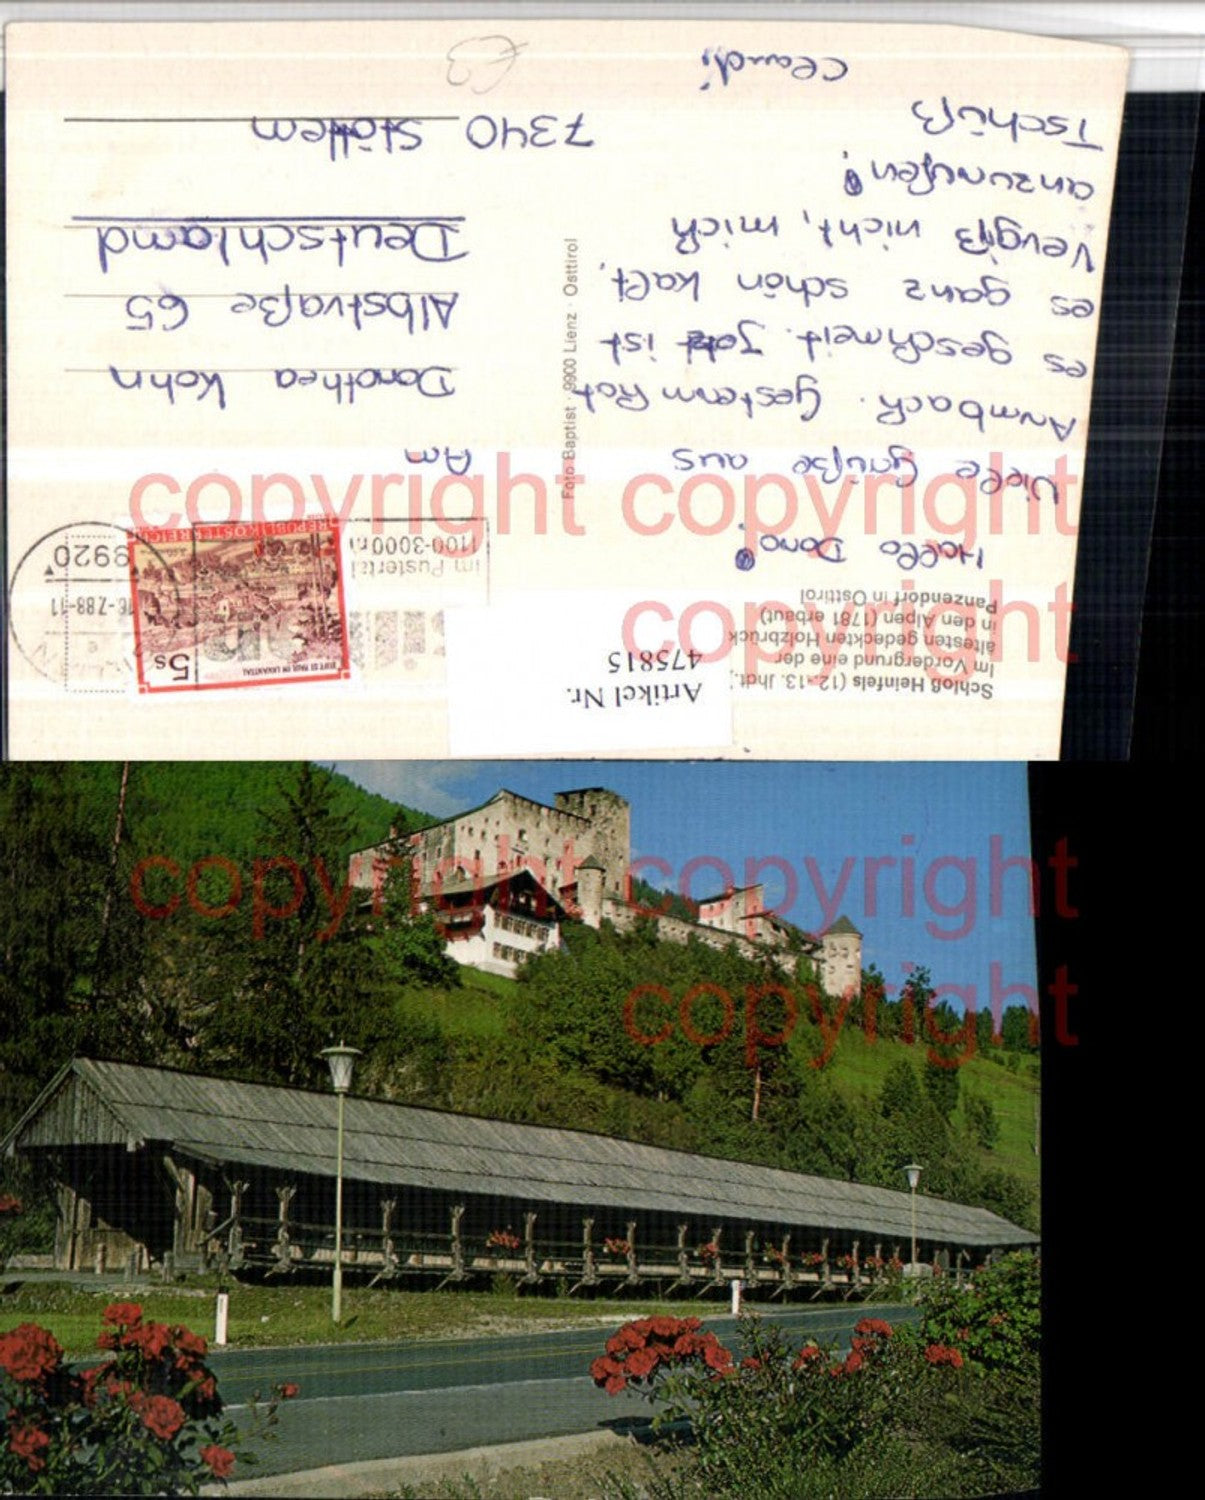 Schloß Heinfels (12.-13. Jhdt.)
Im Vordergrund eine der
ältesten gedeckten Holzbrück
in den Alpen (1781 erbaut)
Panzendorf in Osttirol
Artikel Nr.
475815
5s
STIFT ST. PAUL IM LAVANTTAL
REPUBLIK ÖSTERREICH
im Pustertal
1100-3000 m
16.-7.88-11
9920
Hallo Doro!
Viele Grüße aus
Arnbach. Gestern hat
es geschneit. Jetzt ist
es ganz schön kalt.
Vergiß nicht, mich
anzurufen!
Tschüß
Claudi
Foto Baptist · 9900 Lienz · Osttirol
An
Dorothea Kohn
Albstraße 65
Deutschland
7340
€3
copyright copyright
copyright
copyright copyright
copyright